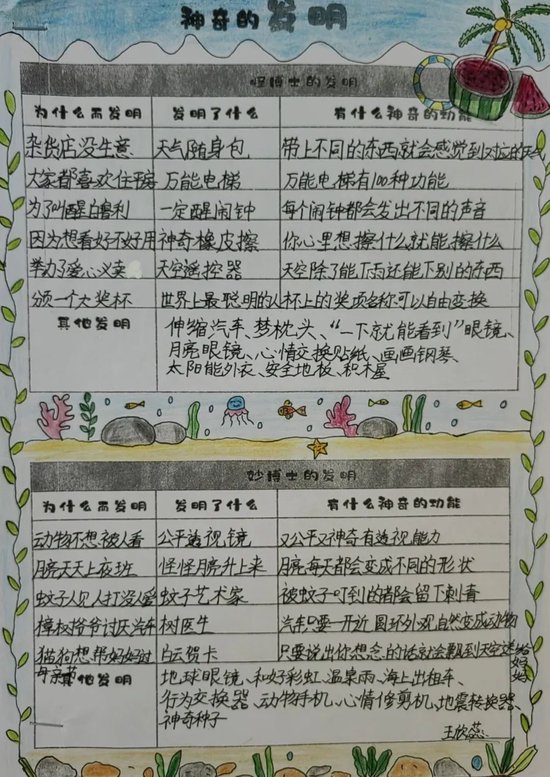 神奇的发明
怪博士的发明
为什么而发明 发明了什么 有什么神奇的功能
杂货店没生意 天气随身包 带上不同的东西就会感觉到对应的天气
大家都喜欢住平房 万能电梯 万能电梯有100种功能
为了叫醒白鲁利 一定醒闹钟 每个闹钟都会发出不同的声音
因为想看好不好用 神奇橡皮擦 你心里想擦什么就能擦什么
举办了爱心义卖 天空遥控器 天空除了能下雨还能下别的东西
颁一个大奖杯 世界上最聪明的人杯 上的奖项名称可以自由变换
其他发明 伸缩汽车、梦枕头、“一下就能看到”眼镜、
月亮眼镜、心情交换贴纸、画画钢琴、
太阳能外衣、安全地板、积木屋
妙博士的发明
为什么而发明 发明了什么 有什么神奇的功能
动物不想被人看 公平透视镜 又公平又神奇有透视能力
月亮天天上夜班 怪怪月亮升上来 月亮每天都会变成不同的形状
蚊子人见人打没人爱 蚊子艺术家 被蚊子叮到的都会留下刺青
樟树爷爷讨厌汽车 树医生 汽车只要一开近圆环外观自然变成动物
猫狗想帮好好过母亲节 白云贺卡 只要说出你想念的话就会飘到天空送给好好
其他发明 地球眼镜、和好彩虹、温泉雨、海上出租车、
行为交换器、动物手机、心情修剪机、地震转换器、
神奇种子
王欣蕊